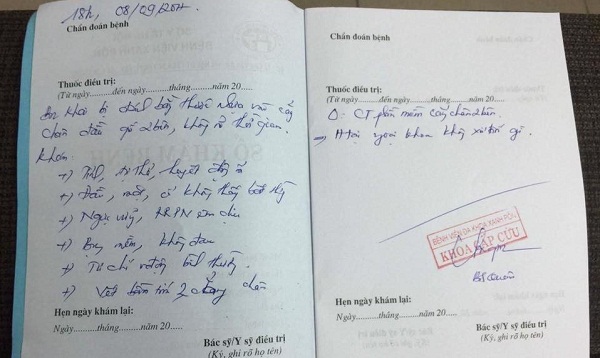 18h, 08/09/2017
Chẩn đoán bệnh
Thuốc điều trị:
(Từ ngày.........đến ngày.........tháng.........năm 20.....
Bn khai bị đánh bằng thước nhựa vào cẳng
chân đầu gối 2 bên, không rõ thời gian.
Khám:
+) Tỉnh, tự thở, huyết động ổn
+) Đầu, mặt, cổ không thấy bất thg
+) Ngực vững, RRPN êm dịu
+) Bụng mềm, không đau
+) Tứ chi vđộng bình thường
+) Vết bầm tím 2 cẳng chân
Hẹn ngày khám lại:
Ngày.........tháng.........năm 20.....
Bác sỹ/Y sỹ điều trị
(Ký, ghi rõ họ tên)
Chẩn đoán bệnh
Thuốc điều trị:
(Từ ngày.........đến ngày.........tháng.........năm 20.....
CT phần mềm cẳng chân 2 bên.
=> Hiện ngoại khoa không xử trí gì.
BỆNH VIỆN ĐA KHOA XANH PÔN
KHOA CẤP CỨU
Hẹn ngày khám lại:
Ngày.........tháng.........năm 20.....
Bác sỹ/Y sỹ điều trị
(Ký, ghi rõ họ tên)